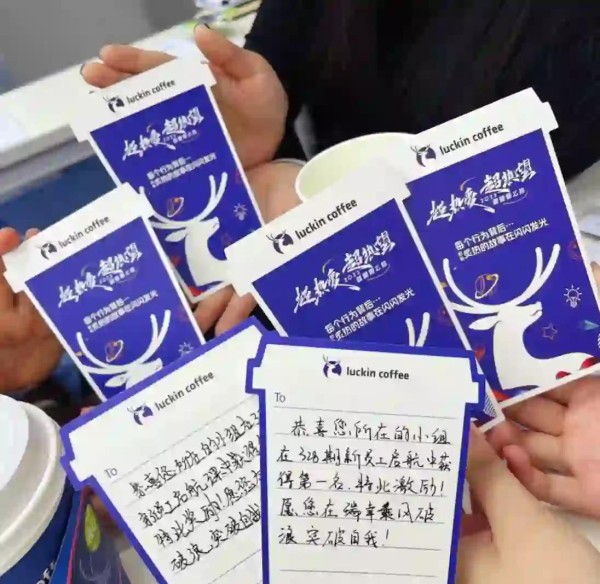 luckin coffee
超热望
每个行为背后…
炙热的故事在闪闪发光
luckin coffee
超热望
每个行为背后…
炙热的故事在闪闪发光
luckin coffee
超热望
每个行为背后…
炙热的故事在闪闪发光
luckin coffee
超热望
每个行为背后…
炙热的故事在闪闪发光
luckin coffee
To
恭喜您所在的小组在
特此激励!愿您
破浪,突破自
luckin coffee
To
恭喜您所在的小组
在328期新员工启航中获
得第一名,特此激励!
愿您在瑞幸乘风破
浪突破自我!